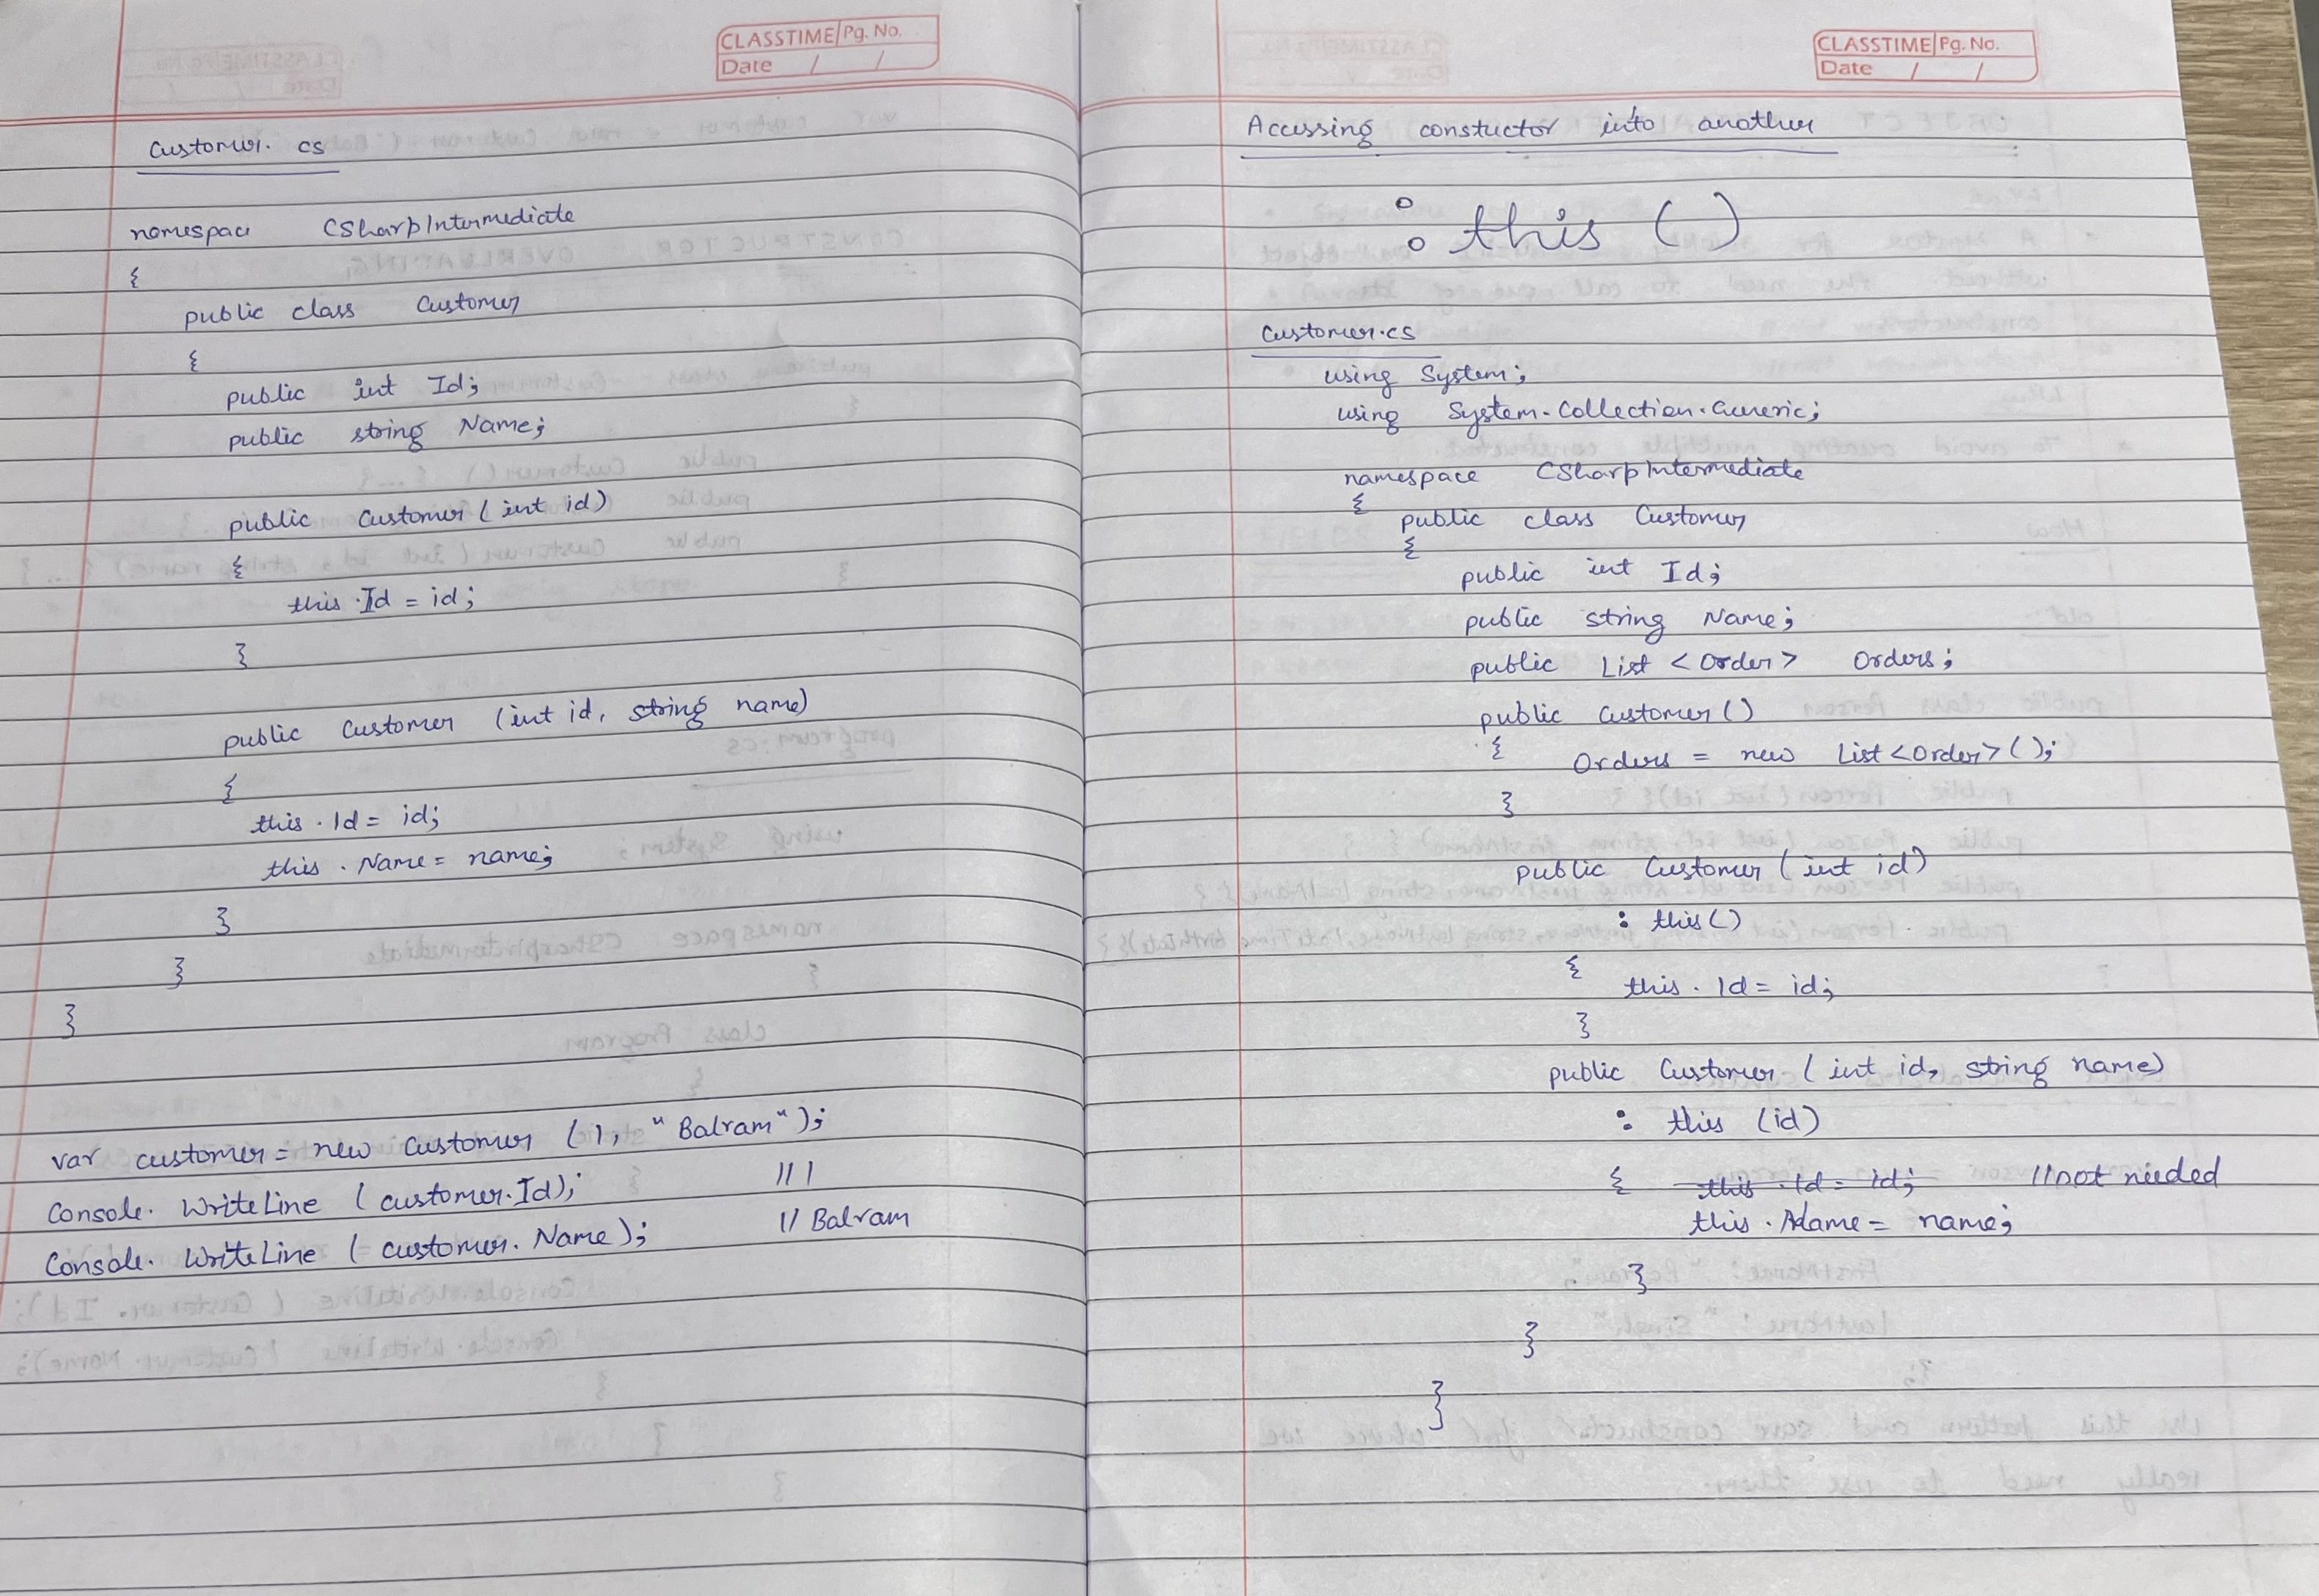 CLASSTIME Pg. No.
Date / /
Customer. cs
namespace CSharpIntermediate
{
public class Customer
{
public int Id;
public string Name;
public Customer (int id)
{
this.Id = id;
}
public Customer (int id, string name)
{
this.Id = id;
this.Name = name;
}
}
}
var customer = new Customer (1, "Balram");
Console.WriteLine (customer.Id); //1
Console.WriteLine (customer.Name); // Balram
CLASSTIME Pg. No.
Date / /
Accessing constuctor into another
: this ()
Customer.cs
using System;
using System.Collection.Generic;
namespace CSharpIntermediate
{
public class Customer
{
public int Id;
public string Name;
public List <Order> Orders;
public Customer ()
{ Orders = new List<Order>();
}
public Customer (int id)
: this ()
{
this.Id = id;
}
public Customer (int id, string name)
: this (id)
{ this.Id = id; //not needed
this.Name = name;
}
}
}